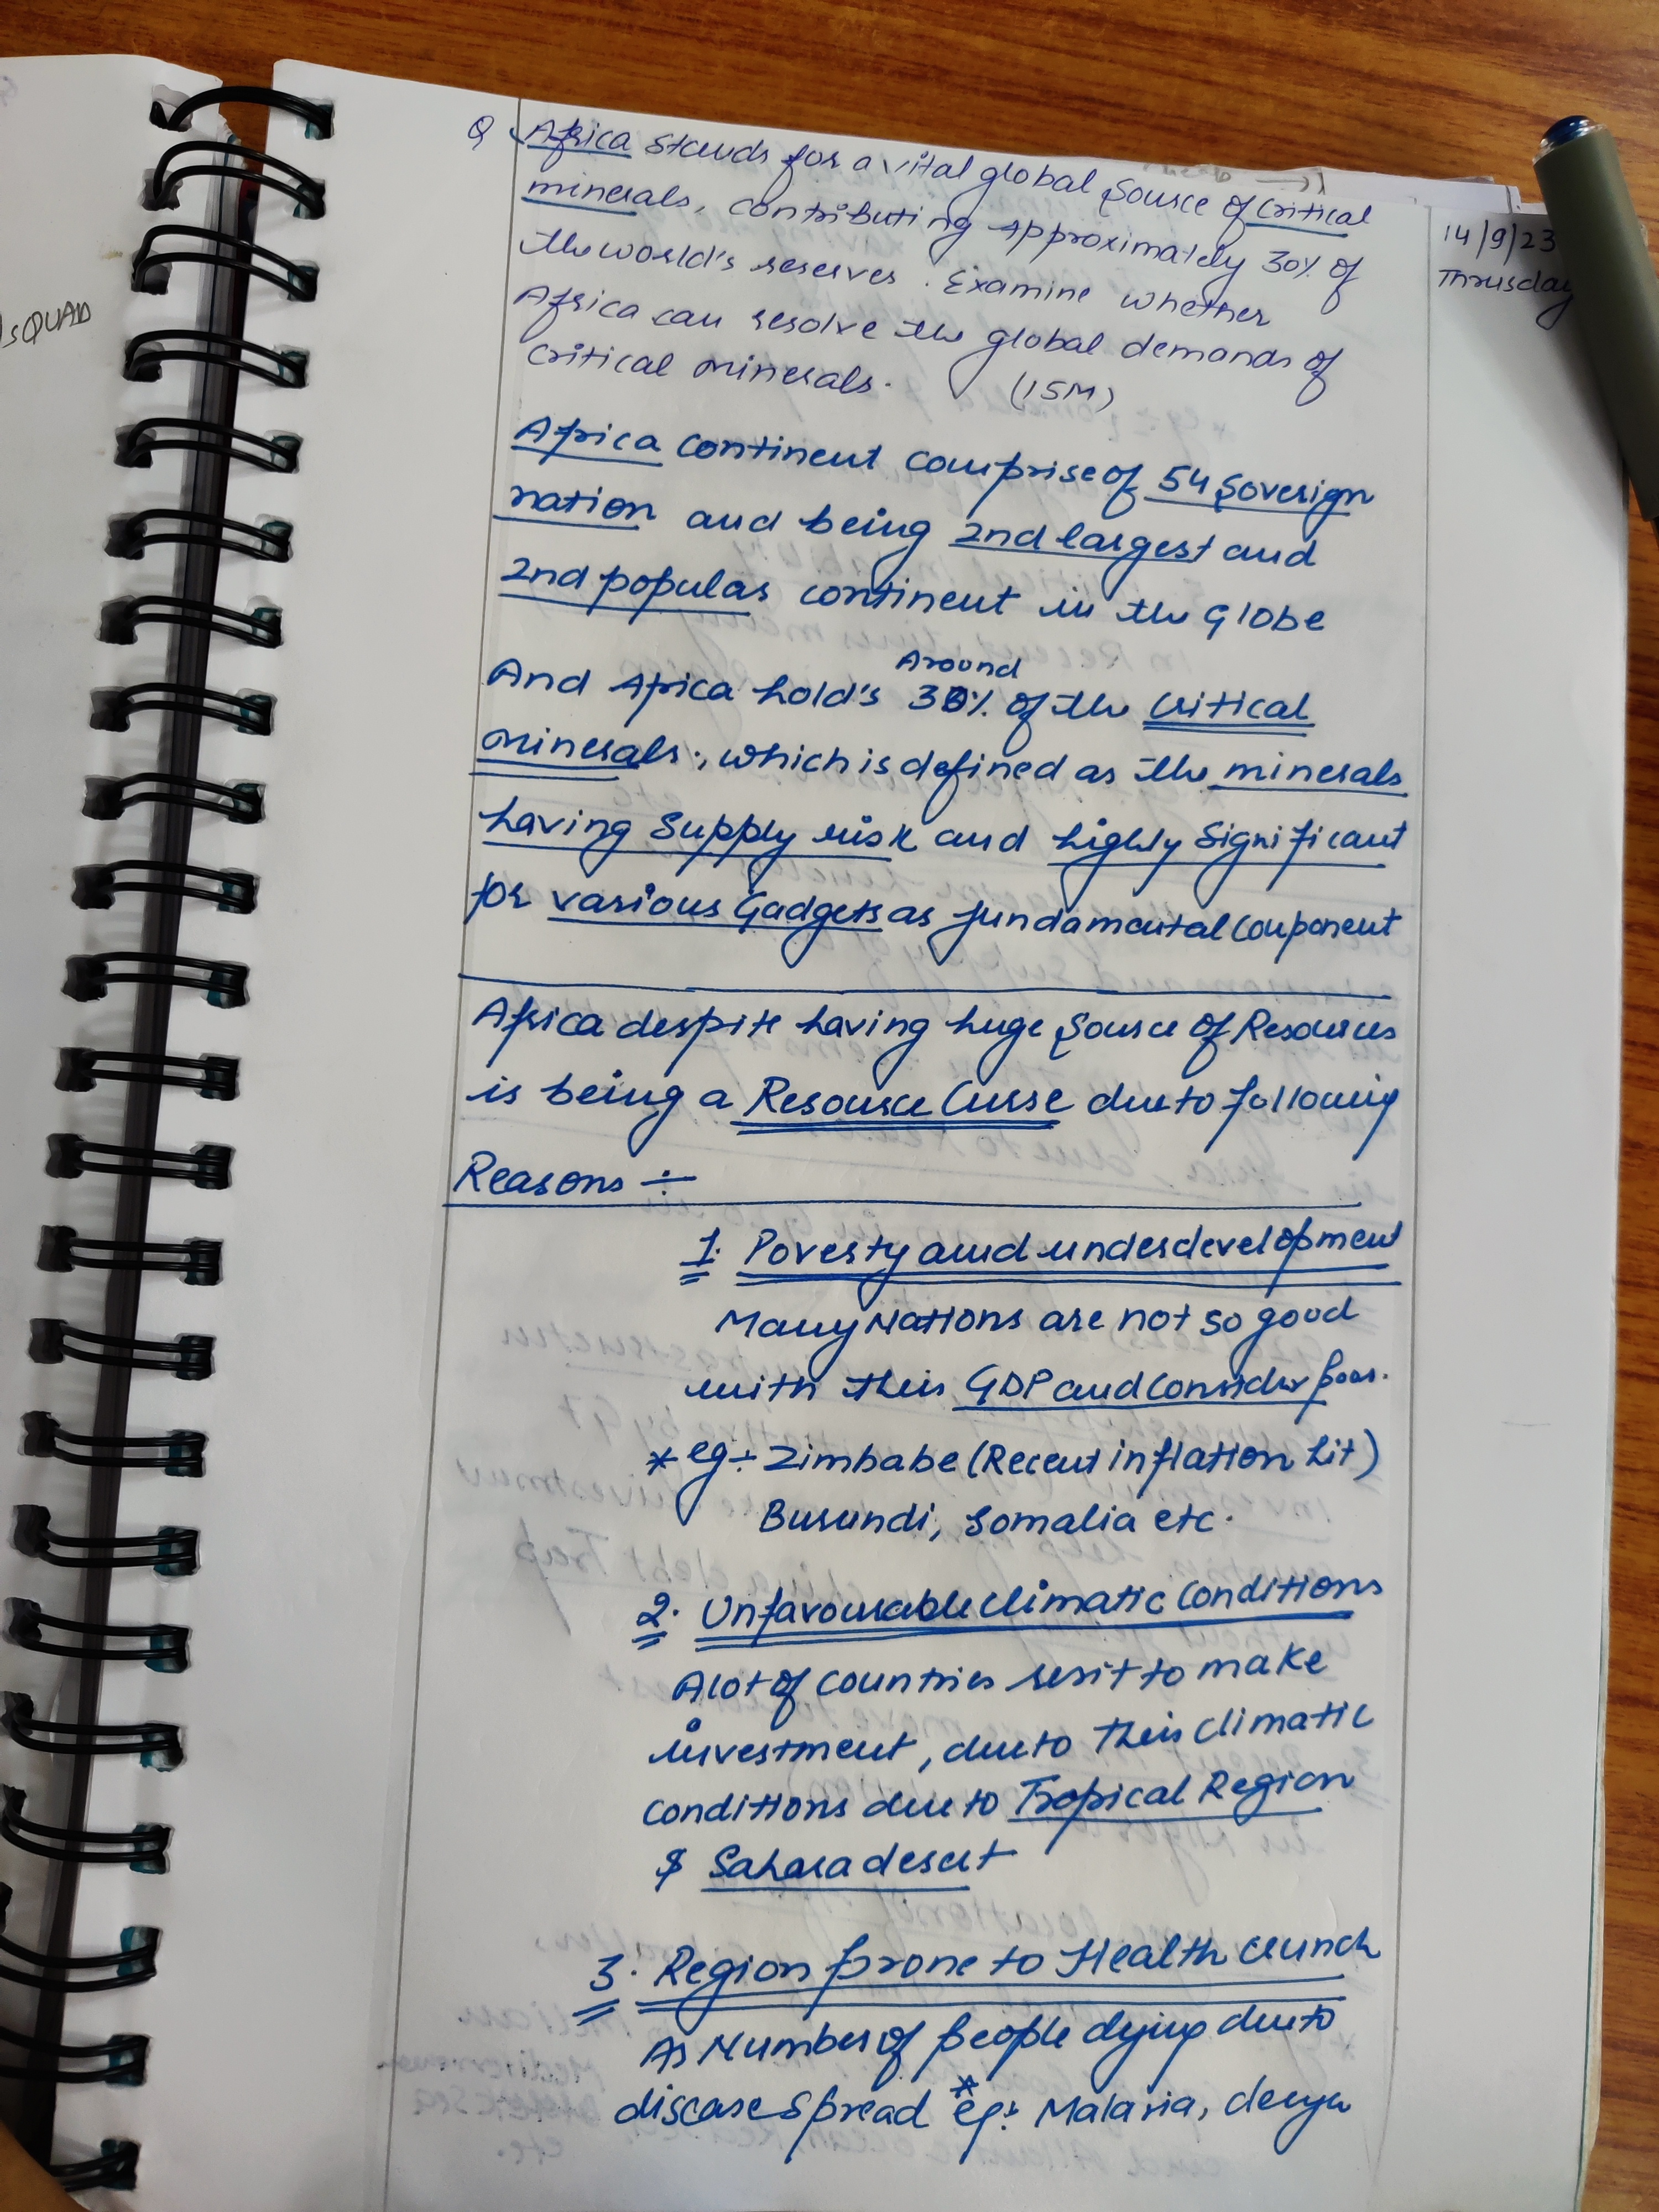 Q. Africa stands for a vital global source of critical
minerals, contributing approximately 30% of
the world's reserves. Examine whether
Africa can resolve the global demands of
critical minerals. (15M)
14/9/23
Thrusday
sQUAD
Africa continent comprise of 54 Soverign
nation and being 2nd largest and
2nd popular continent in the Globe
Around
And Africa hold's 30% of the critical
minerals, which is defined as the minerals
having supply risk and highly significant
for various Gadgets as fundamental component
Africa despite having huge source of Resources
is being a Resource Curse due to following
Reasons ÷
1. Poverty amd underdevelopment
Many Nations are not so good
with their GDP and consider poor.
* eg ÷ Zimbabe (Recent inflation hit)
Burundi, Somalia etc.
2. Unfavourable climatic Conditions
A lot of countries to make
investment, due to their climatic
conditions due to Tropical Region
& Sahara desert
3. Region prone to Health crunch
As Number of people dying due to
disease spread * eg: Malaria, dengu